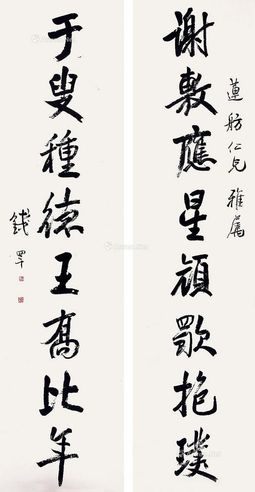 蓮舫仁兄雅屬
謝敷應星顔歜抱璞
于叟種德王喬比年
錢罕